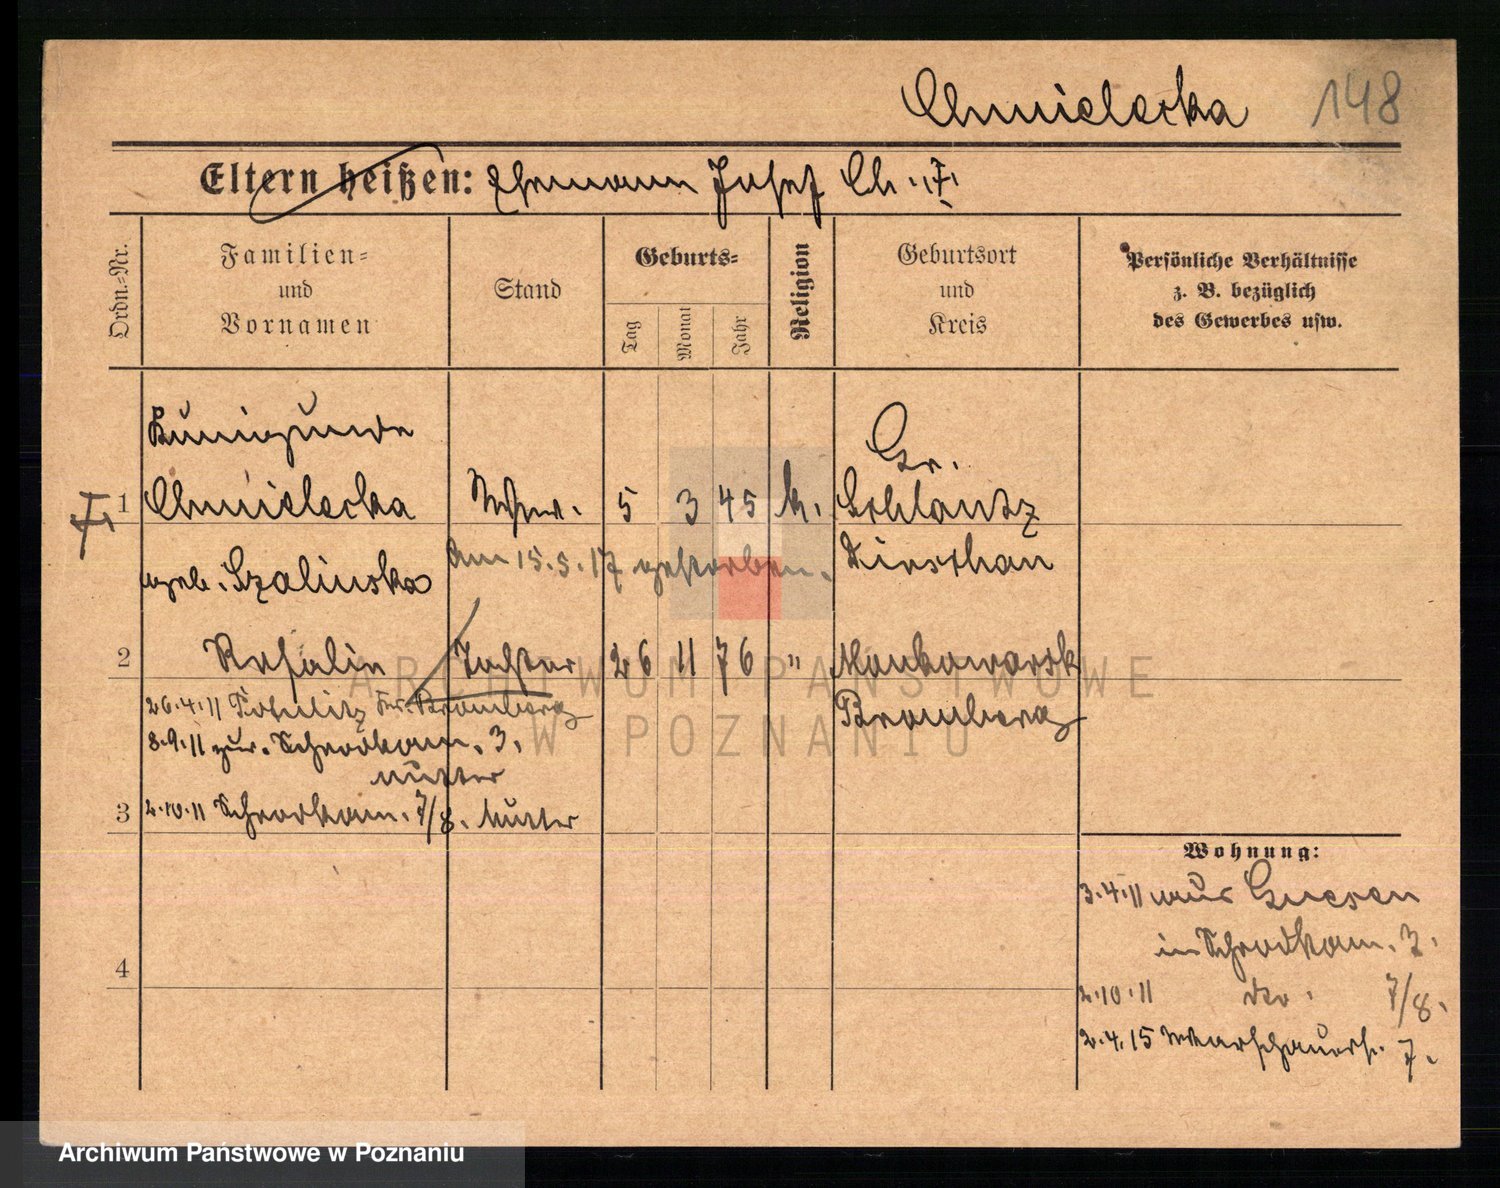 Chmielecka 148
Eltern heißen: Ehemann Josef Ch.
Ordn.-Nr.
Familien-
und
Vornamen
Stand
Geburts-
Tag
Monat
Jahr
Religion
Geburtsort
und
Kreis
Persönliche Verhältnisse
z. B. bezüglich
des Gewerbes usw.
Kunigunde
1 Chmielecka Wwe. 5 3 45 k. Gr. Schlantz
geb. Szalinska am 15.5.17 gestorben. Dirschau
2 Rosalie Tochter 26 11 76 " Monkowarsk
Bromberg
26.4.11 Kr. Bromberg
8.9.11 zur. Schrodkam. 3.
Mutter
3 2.10.11 Schrodkam. 7/8. Mutter
4
Wohnung:
3.4.11 aus Gnesen
in Schrodkam. 3.
2.10.11 do. 7/8.
2.4.15 Warschauerst. 7.
ARCHIWUM PAŃSTWOWE
W POZNANIU
Archiwum Państwowe w Poznaniu